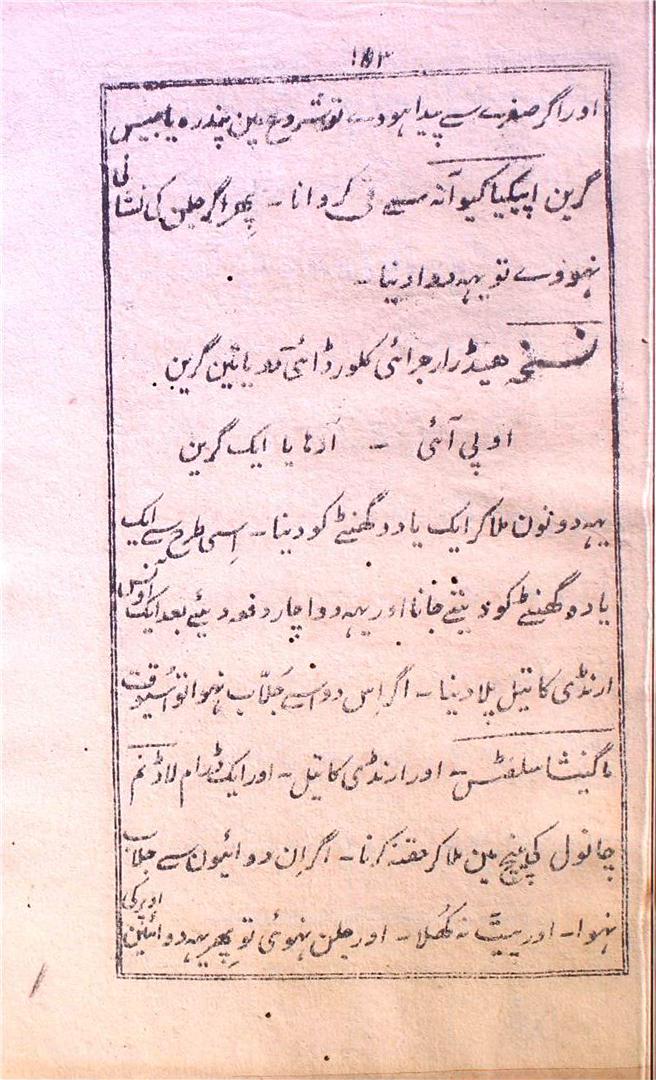 ۱۵۳
اور اگر صفرے سے پیدا ہووے تو شروع مین پندرہ یا بیس
گرین اپیکیا کیوآنہ سے قی کروانا۔ پھر اگر جلن کی نشانی
نہووے تو یہہ دوا دینا۔
نسخہ ھیڈرارجرائی کلورڈائی دو یا تین گرین
اوپی آئی - آدھا یا ایک گرین
یہہ دونون ملا کر ایک یا دو گھنٹے کو دینا۔ اِسی طرح سے ایک
یا دو گھنٹے کو دیتے جانا اور یہہ دوا چار دفعہ دیئے بعد ایک اونس
ارنڈی کا تیل پلا دینا۔ اگر اِس دوا سے جلّاب نہوا تو اُسیوقت
ماگنیشا سلفٹس۔ اور ارنڈی کا تیل۔ اور ایک ڈرام لاڈنم
چانول کی پیچ مین ملا کر حقنہ کرنا۔ اگر اِن دوائیون سے جلاب
نہوا۔ اور پیٹ نہ کُھلا۔ اور جلن نہوئی تو پِھر یہہ دوائین اوپر کی